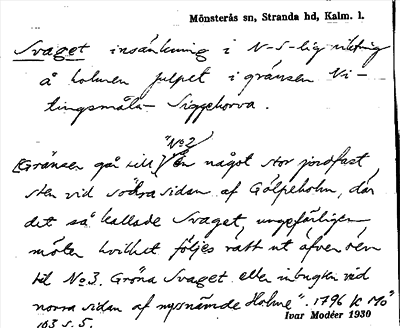 Mönsterås sn, Stranda hd, Kalm. l.
Svaget insänkning i N-S-lig riktning
å holmen Julpet i gränsen Vi-
tingsmåla-Siggehorva.
"No 2/
[Gränsen går till] En något stor jordfast
sten vid södra sidan af Gölpeholm, där
det så kallade Svaget, ungefärligen
möter hvilket följes rätt ut åfven
til No 3. Gröna Svaget eller inbugten vid
norra sidan af nyssnämde Holme". 1796 K Mo
103 s. 5.
Ivar Modéer 1930